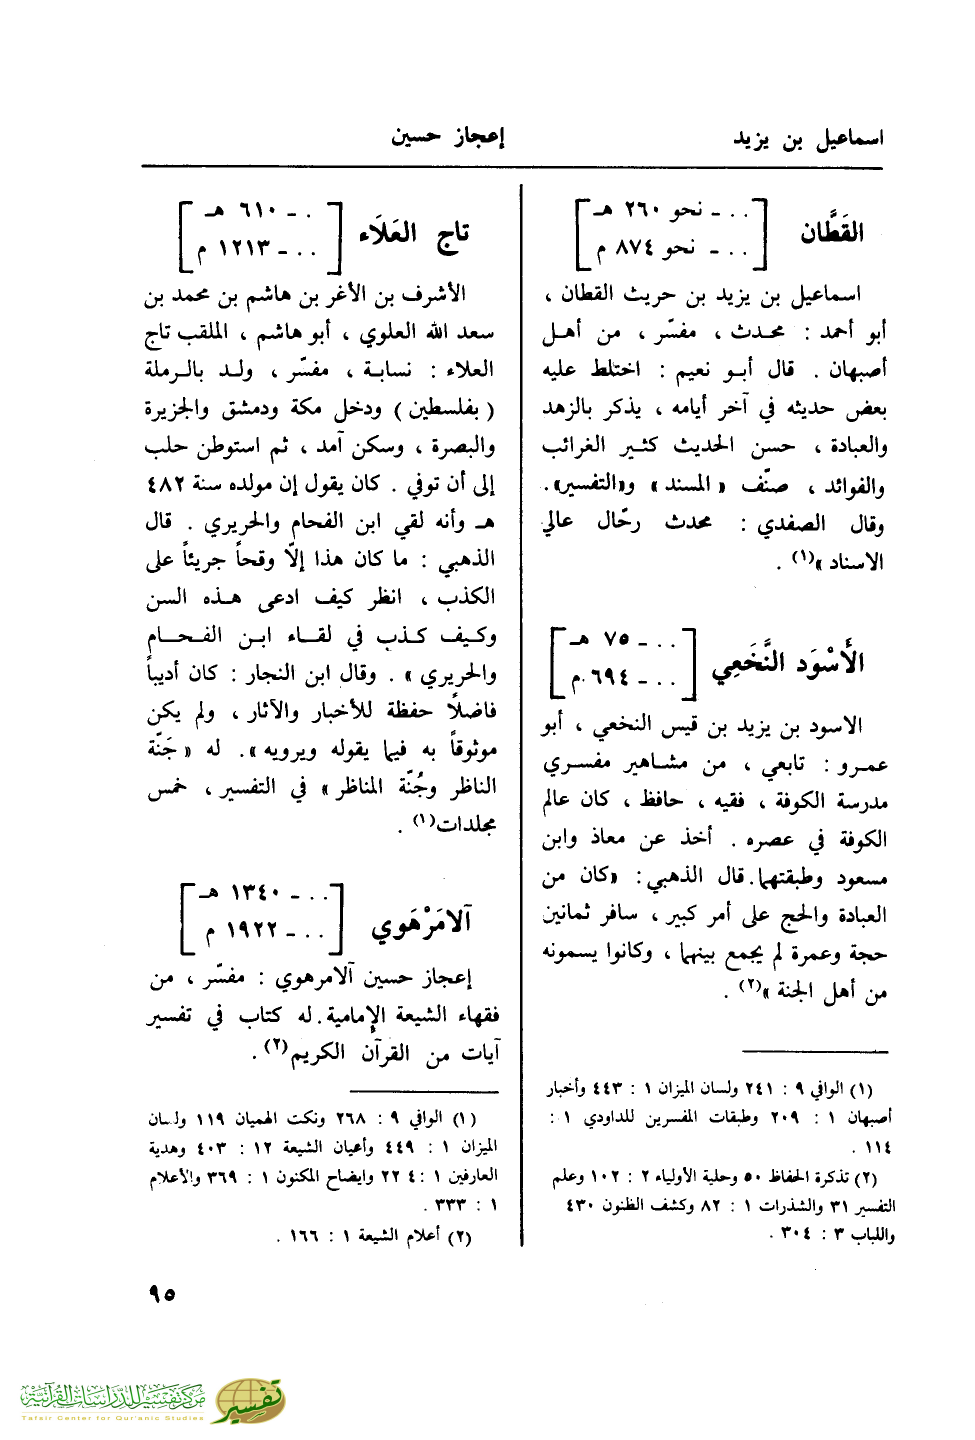 اسماعيل بن يزيد
إعجاز حسين
القَطَّان
. . ـ نحو ٢٦٠ هـ
. . ـ نحو ٨٧٤ م
اسماعيل بن يزيد بن حريث القطان ،
أبو أحمد : محدث ، مفسّر ، من أهل
أصبهان . قال أبو نعيم : اختلط عليه
بعض حديثه في آخر أيامه ، يذكر بالزهد
والعبادة ، حسن الحديث كثير الغرائب
والفوائد ، صنّف « المسند » و«التفسير».
وقال الصفدي : محدث رحّال عالي
الاسناد »(١) .
الأَسْوَد النَّخَعِي
. . ـ ٧٥ هـ
. . ـ ٦٩٤ م
الاسود بن يزيد بن قيس النخعي ، أبو
عمرو : تابعي ، من مشاهير مفسري
مدرسة الكوفة ، فقيه ، حافظ ، كان عالم
الكوفة في عصره . أخذ عن معاذ وابن
مسعود وطبقتهما. قال الذهبي : «كان من
العبادة والحج على أمر كبير ، سافر ثمانين
حجة وعمرة لم يجمع بينهما ، وكانوا يسمونه
من أهل الجنة »(٢) .
(١) الوافي ٩ : ٢٤١ ولسان الميزان ١ : ٤٤٣ وأخبار
أصبهان ١ : ٢٠٩ وطبقات المفسرين للداودي ١ :
١١٤ .
(٢) تذكرة الحفاظ ٥٠ وحلية الأولياء ٢ : ١٠٢ وعلم
التفسير ٣١ والشذرات ١ : ٨٢ وكشف الظنون ٤٣٠
واللباب ٣ : ٣٠٤ .
تاج العَلَاء
. ـ ٦١٠ هـ
. . ـ ١٢١٣ م
الأشرف بن الأغر بن هاشم بن محمد بن
سعد الله العلوي ، أبو هاشم ، الملقب تاج
العلاء : نسابة ، مفسّر ، ولد بالرملة
( بفلسطين ) ودخل مكة ودمشق والجزيرة
والبصرة ، وسكن آمد ، ثم استوطن حلب
إلى أن توفي . كان يقول إن مولده سنة ٤٨٢
هـ وأنه لقي ابن الفحام والحريري . قال
الذهبي : ما كان هذا إلّا وقحاً جريئاً على
الكذب ، انظر كيف ادعى هذه السن
وكيف كذب في لقاء ابن الفحام
والحريري » . وقال ابن النجار : كان أديباً
فاضلاً حفظة للأخبار والآثار ، ولم يكن
موثوقاً به فيما يقوله ويرويه». له « جَنّة
الناظر وجُنّة المناظر » في التفسير ، خمس
مجلدات(١) .
آلامَرْهَوي
. . ـ ١٣٤٠ هـ
. . ـ ١٩٢٢ م
إعجاز حسين آلامرهوي : مفسّر ، من
فقهاء الشيعة الإمامية. له كتاب في تفسير
آيات من القرآن الكريم(٢) .
(١) الوافي ٩ : ٢٦٨ ونكت الهميان ١١٩ ولسان
الميزان ١ : ٤٤٩ وأعيان الشيعة ١٢ : ٤٠٣ وهدية
العارفين ١ : ٢٢٤ وايضاح المكنون ١ : ٣٦٩ والأعلام
١ : ٣٣٣ .
(٢) أعلام الشيعة ١ : ١٦٦ .
٩٥
مركز تفسير للدراسات القرآنية
Tafsir Center for Qur'anic Studies
تفسير